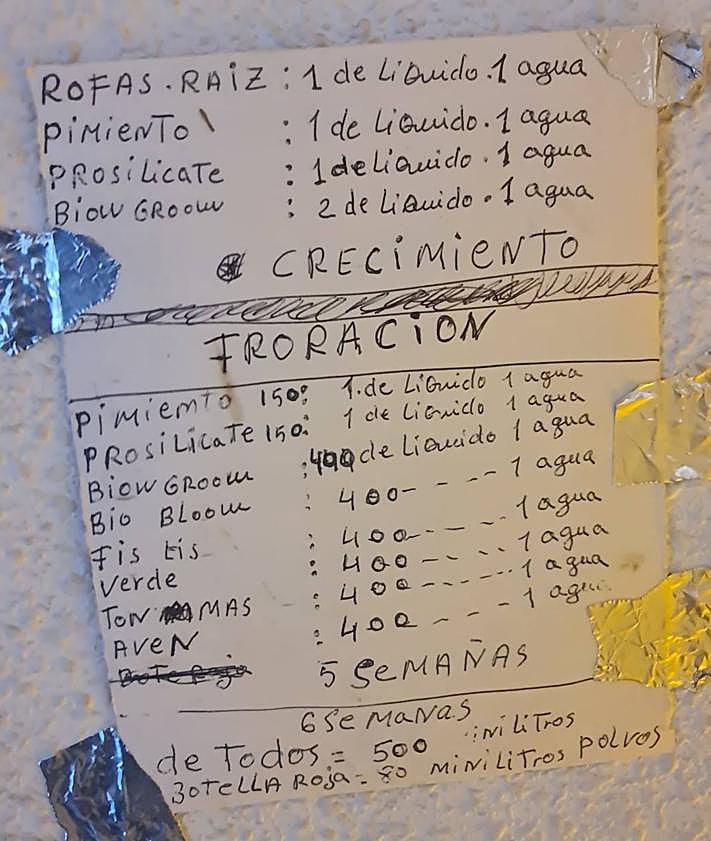 ROFAS.RAIZ : 1 de Liquido.1 agua
PIMIENTO : 1 de Liquido.1 agua
PROSILICATE : 1 de Liquido.1 agua
BIOW GROOW : 2 de Liquido.1 agua
CRECIMIENTO
FRORACION
PIMIEMTO 150: 1.de Liquido 1 agua
PROSILICATE 150: 1 de Liquido 1 agua
BIOW GROOW : 400 de Liquido 1 agua
BIO BLOOM : 400---- 1 agua
FIS tis : 400---- 1 agua
Verde : 400---- 1 agua
TON MAS : 400---- 1 agua
AVEN : 400---- 1 agua
5 SEMAÑAS
6 SEMANAS
de TODOS = 500 iniLITROS
BOTELLA ROJA = 80 MINILITROS POLVOS